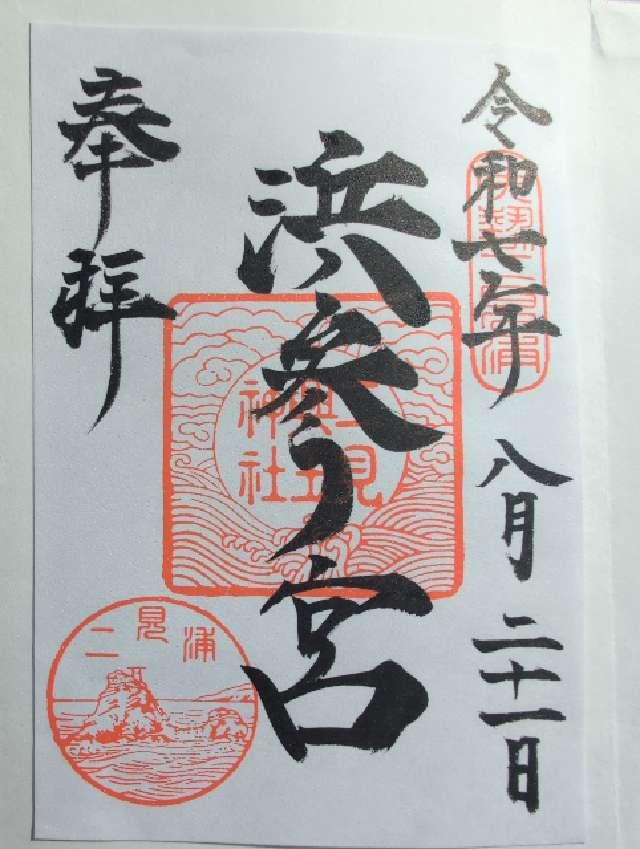 令和七年 八月 二十一日
伊勢二見浦
浜参ノ宮
二見興玉神社
奉拝
二見浦